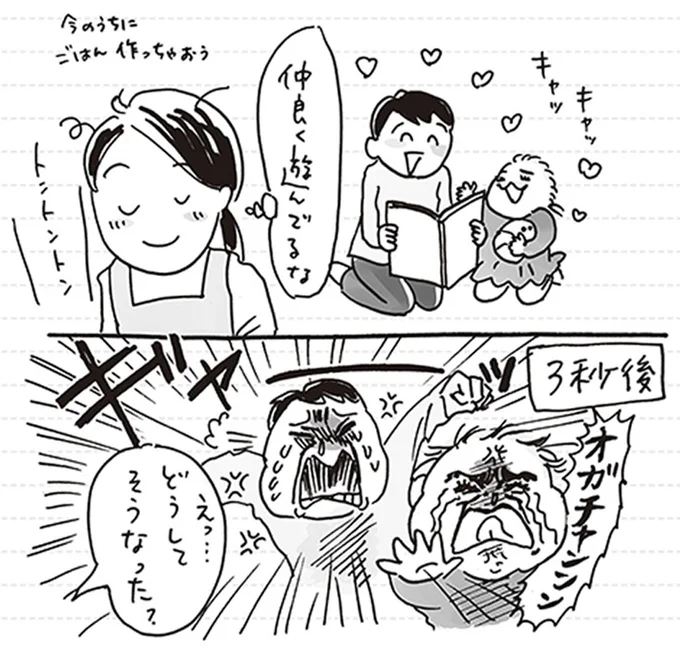 今のうちに
ごはん作っちゃおう
キャッ
キャッ
仲良く遊んでるな
トントントントン
3秒後
ギャー
オガチャンンン
えっ…
どうして
そうなった?